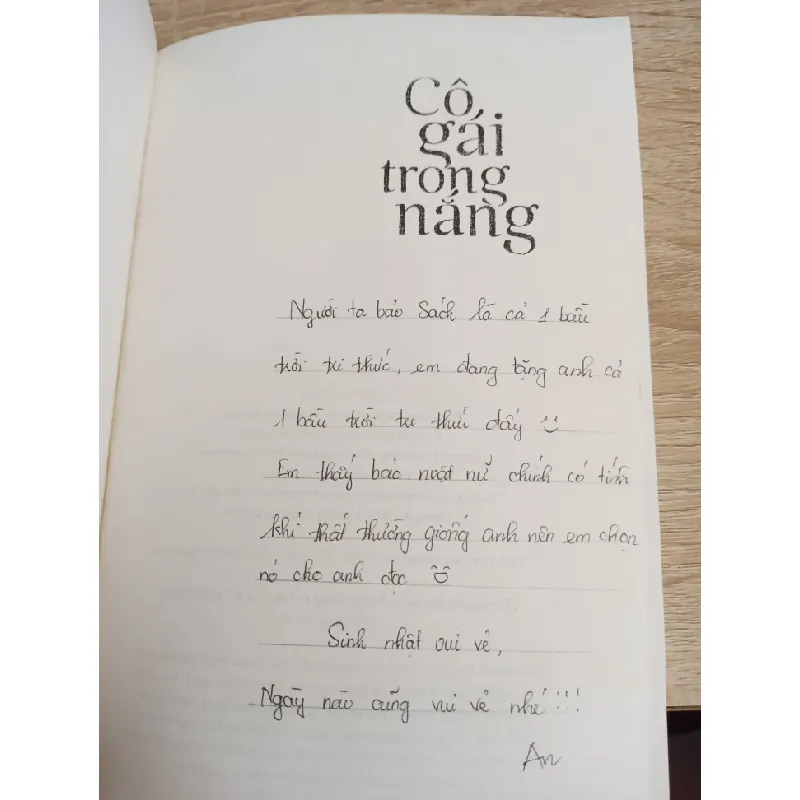 Cô
gái
trong
nắng
Người ta bảo Sách là cả 1 bầu
trời tri thức, em đang tặng anh cả
1 bầu trời tri thức đấy
Em thấy bảo nữ chính có tính
khí thất thường giống anh nên em chọn
nó cho anh đọc
Sinh nhật vui vẻ,
Ngày nào cũng vui vẻ nhé!!!
An